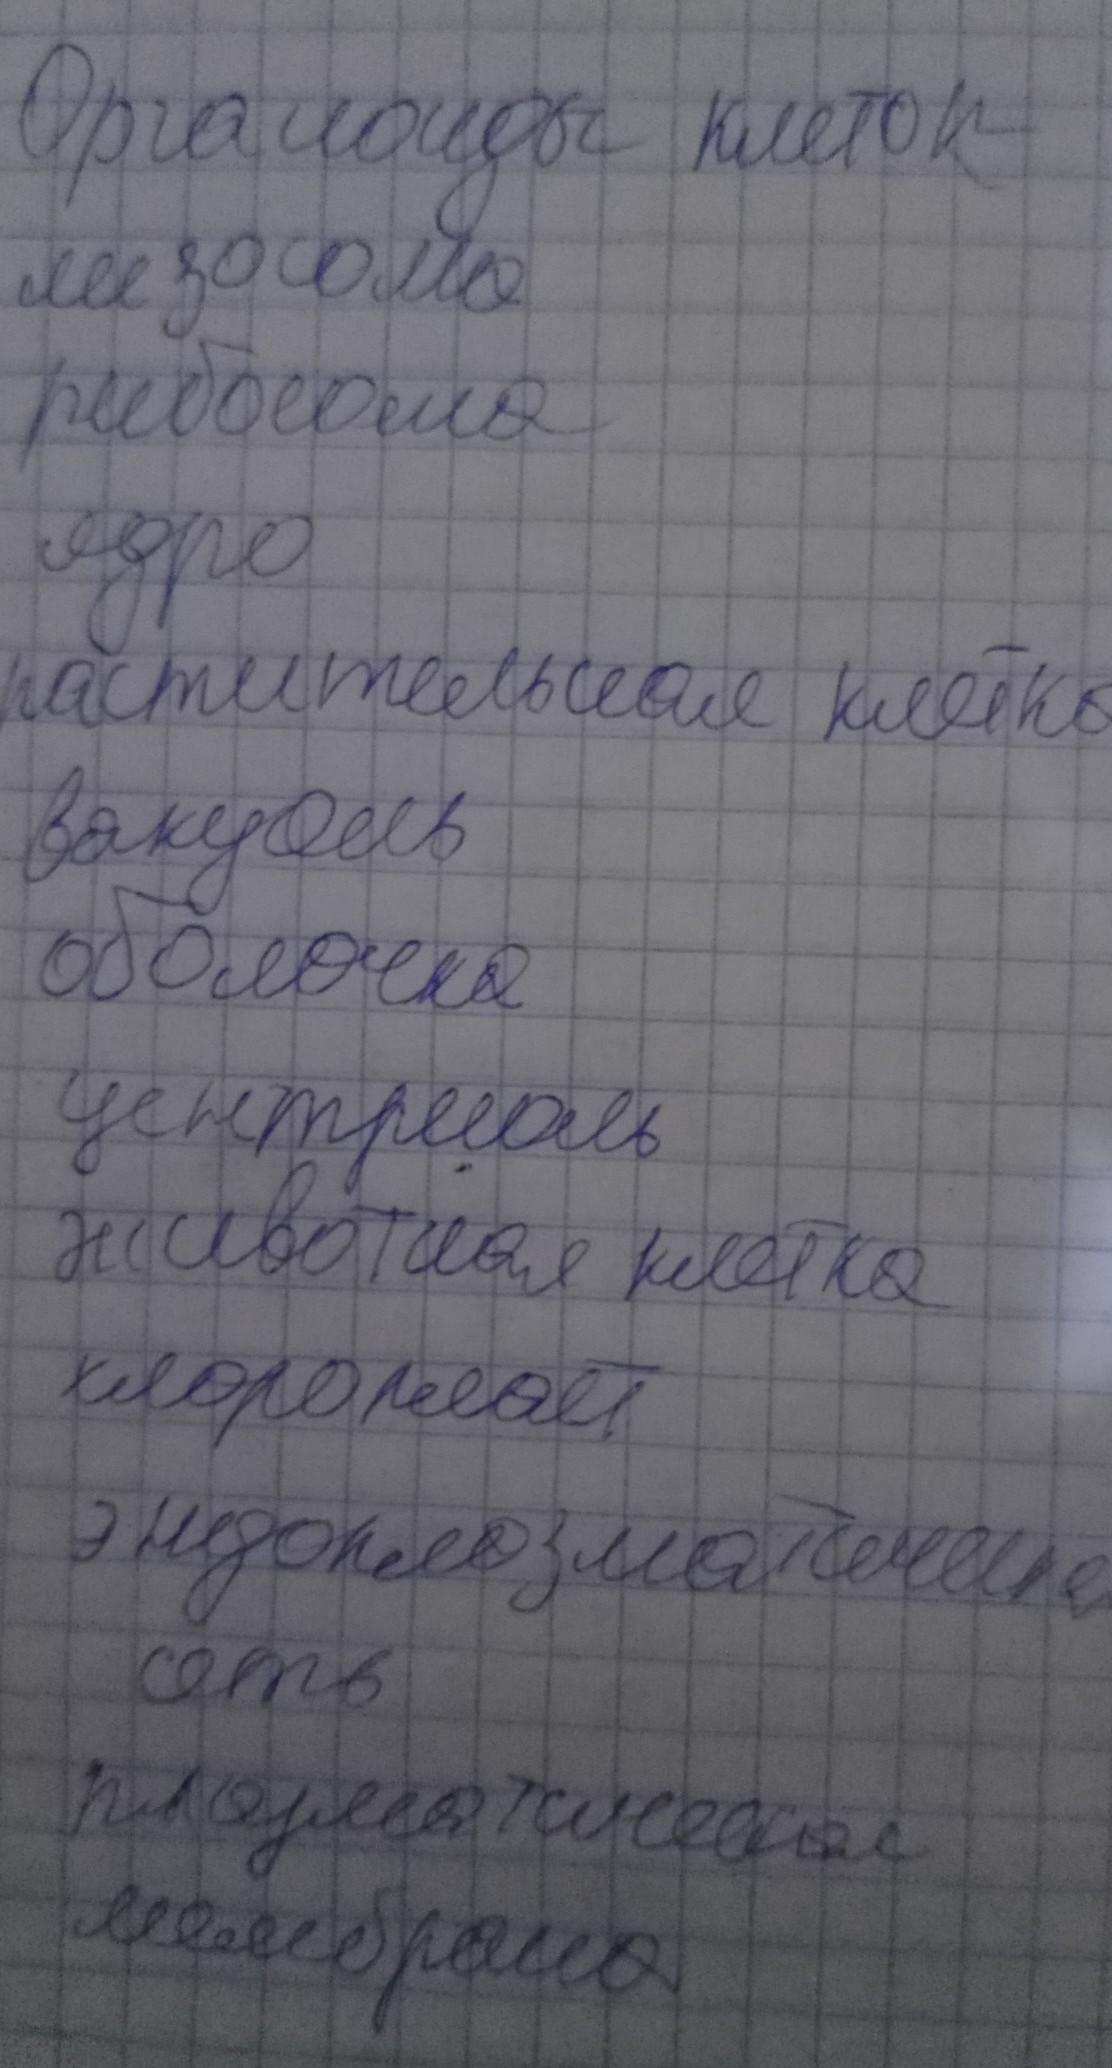 Органоиды клеток
мезосома
рибосома
ядро
растительная клетка
вакуоль
оболочка
центриоль
животная клетка
хлоропласт
эндоплазматическая
сеть
плазматическая
мембрана